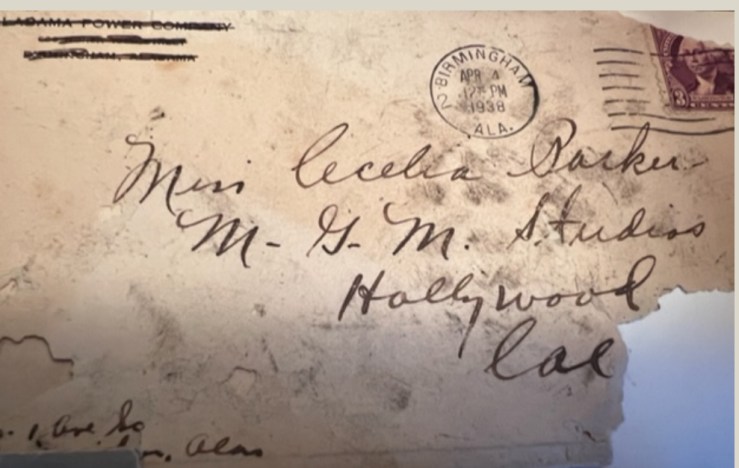 LABAMA POWER COMPANY
BIRMINGHAM, ALABAMA
BIRMINGHAM
APR 4
12 PM
1938
ALA.
2
3
CENTS
Miss Cecelia Parker
M-G-M. Studios
Hollywood
Cal
1 Ave So
Ala